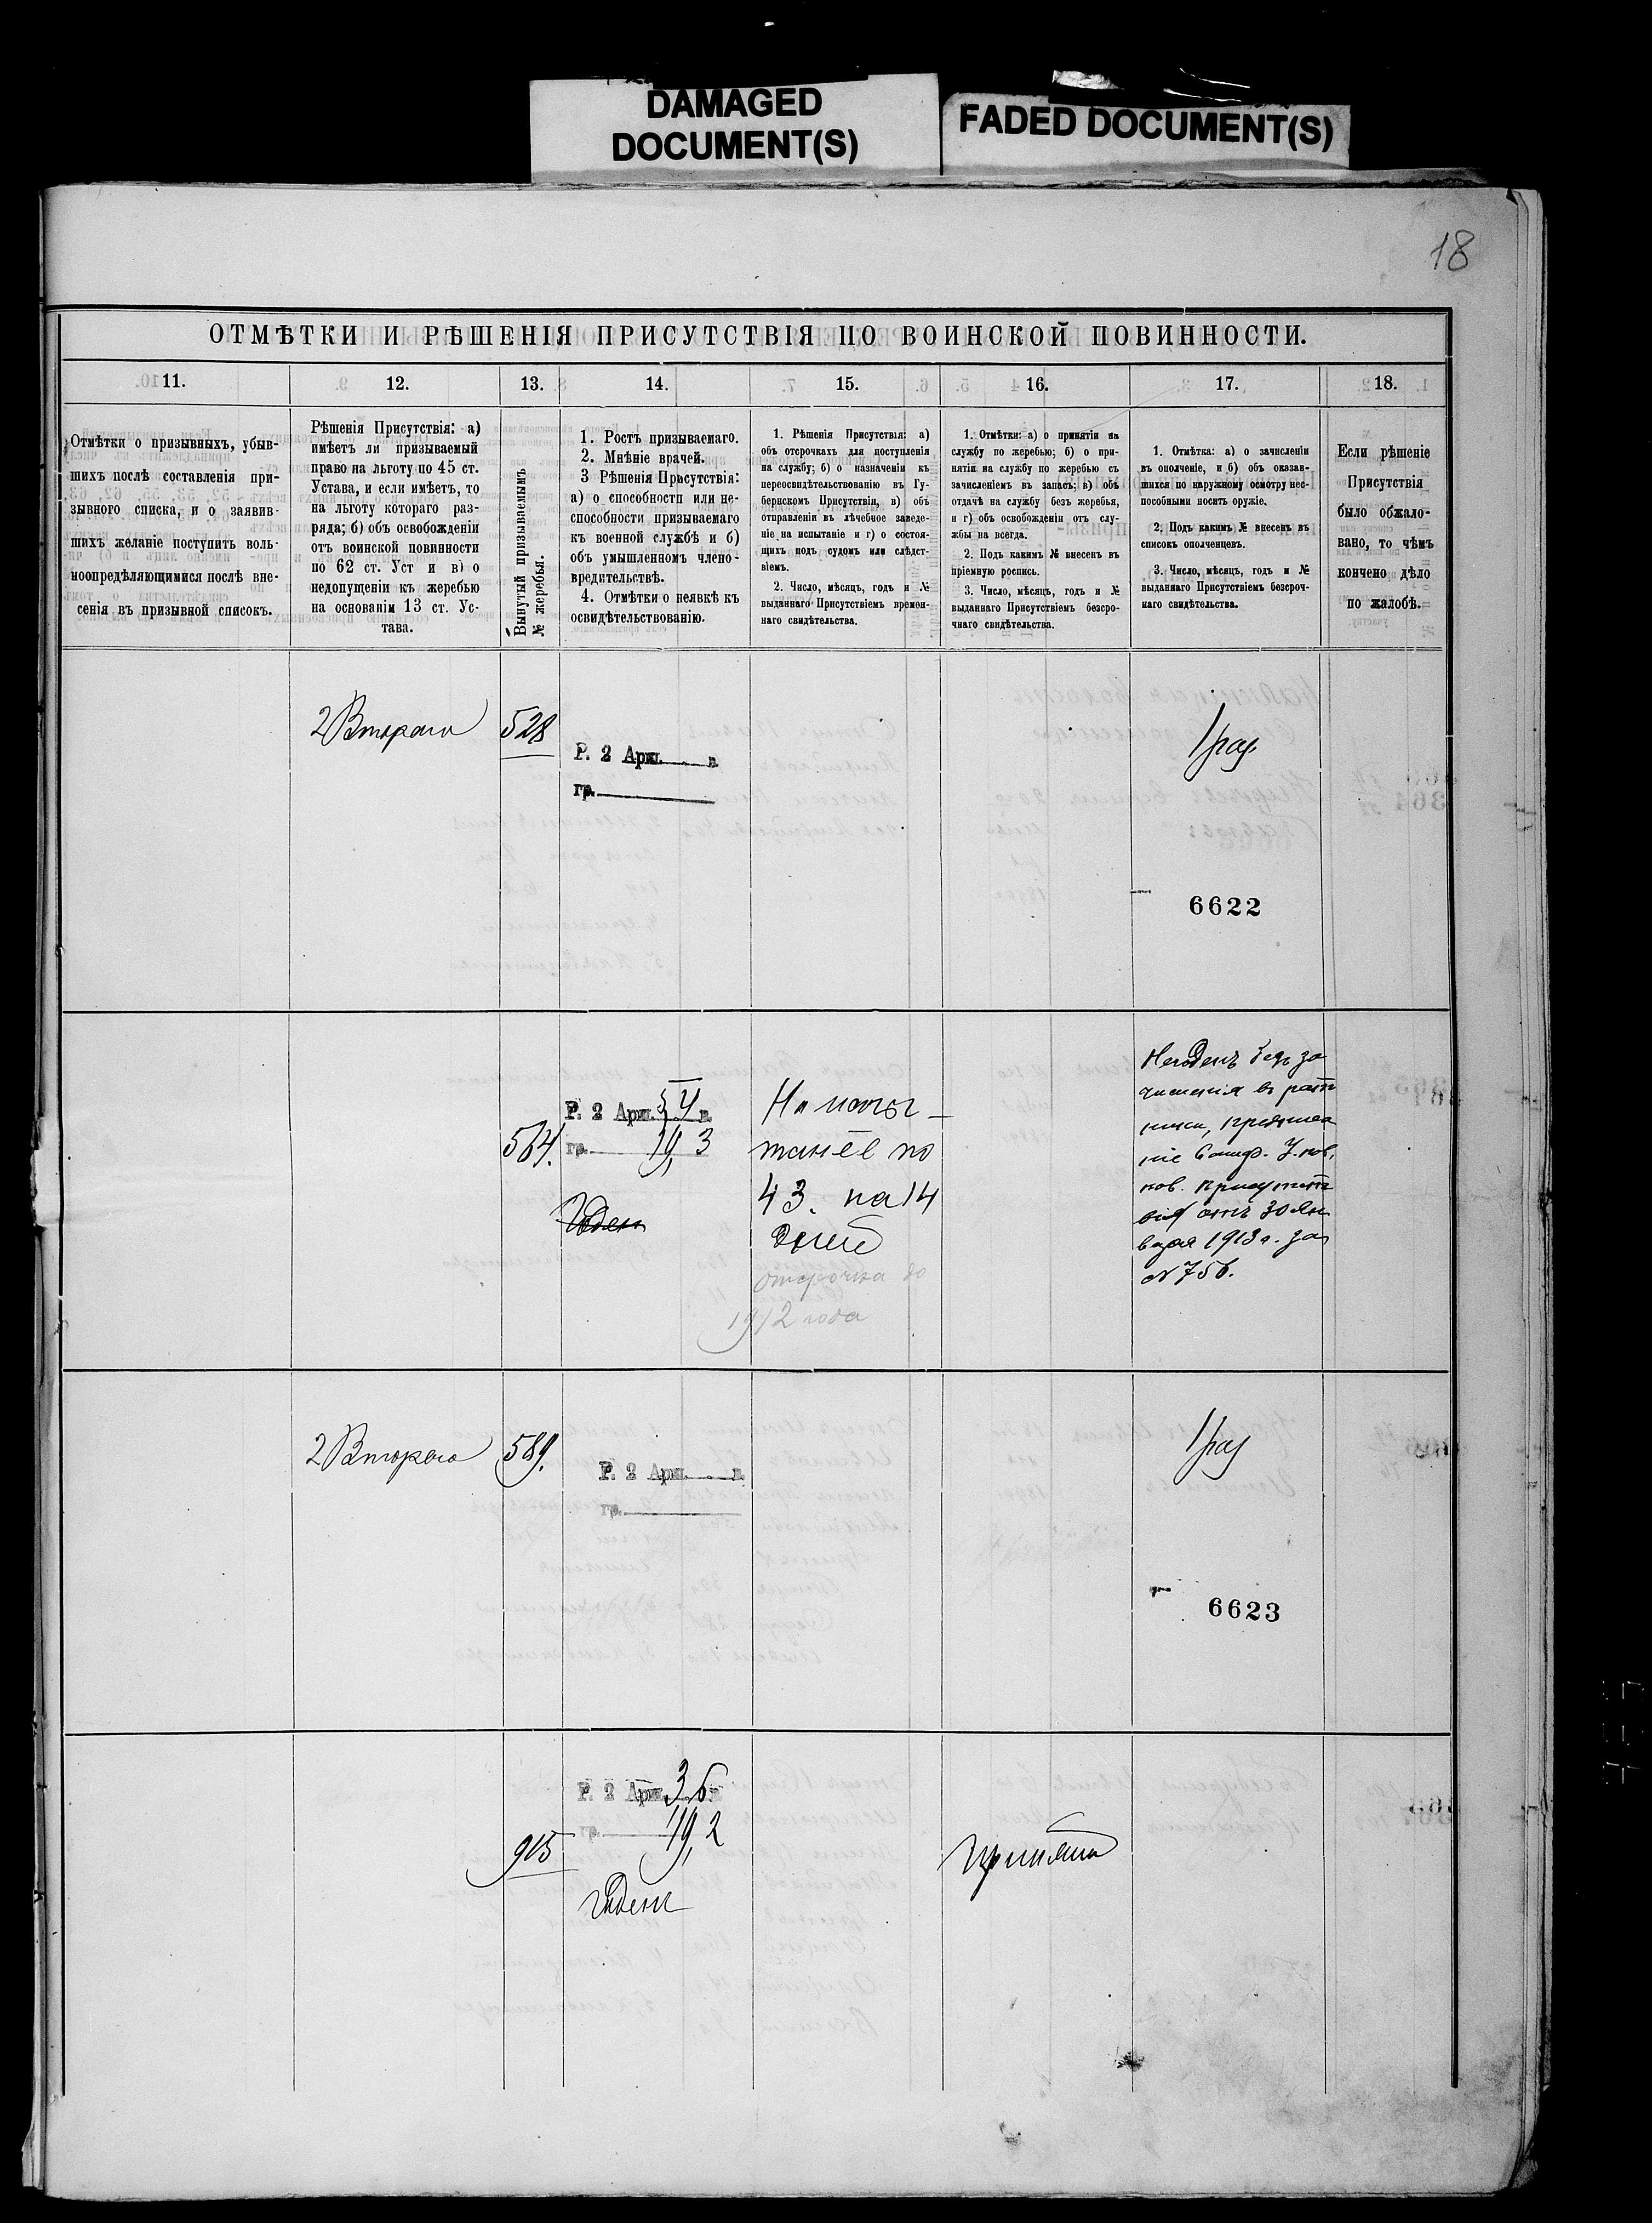 DAMAGED
DOCUMENT(S)
FADED DOCUMENT(S)
18
ОТМѢТКИ И РѢШЕНІЯ ПРИСУТСТВІЯ ПО ВОИНСКОЙ ПОВИННОСТИ.
11.
12.
13.
14.
15.
16.
17.
18.
Отмѣтки о призывныхъ, убыв-
шихъ послѣ составленія при-
зывного списка, и о заявив-
шихъ желаніе поступить воль-
ноопредѣляющимися послѣ вне-
сенія въ призывной списокъ.
Рѣшенія Присутствія: а)
имѣетъ ли призываемый
право на льготу по 45 ст.
Устава, и если имѣетъ, то
на льготу котораго раз-
ряда; б) объ освобожденіи
отъ воинской повинности
по 62 ст. Уст и в) о
недопущеніи къ жеребью
на основаніи 13 ст. Ус-
тава.
Вынутый призываемымъ
№ жеребья.
1. Ростъ призываемаго.
2. Мнѣніе врачей.
3 Рѣшенія Присутствія:
а) о способности или не-
способности призываемаго
къ военной службѣ и б)
объ умышленномъ члено-
вредительствѣ.
4. Отмѣтки о неявкѣ къ
освидѣтельствованію.
1. Рѣшенія Присутствія: а)
объ отсрочкахъ для поступленія
на службу; б) о назначеніи къ
переосвидѣтельствованію въ Гу-
бернскомъ Присутствіи, в) объ
отправленіи въ лѣчебное заведе-
ніе на испытаніе и г) о состоя-
щихъ подъ судомъ или слѣдст-
віемъ.
2. Число, мѣсяцъ, годъ и №
выданнаго Присутствіемъ времен-
наго свидѣтельства.
1. Отмѣтки: а) о принятіи на
службу по жеребью; б) о при-
нятіи на службу по жеребью съ
зачисленіемъ въ запасъ; в) объ
отдачѣ на службу безъ жеребья,
и г) объ освобожденіи отъ слу-
жбы на всегда.
2. Подъ какимъ № внесенъ въ
пріемную роспись.
3. Число, мѣсяцъ, годъ и №
выданнаго Присутствіемъ безсро-
чнаго свидѣтельства.
1. Отмѣтка: а) о зачисленіи
въ ополченіе, и б) объ оказав-
шихся по наружному осмотру нес-
пособными носить оружіе.
2. Подъ какимъ № внесенъ въ
списокъ ополченцевъ.
3. Число, мѣсяцъ, годъ и №
выданнаго Присутствіемъ безсроч-
наго свидѣтельства.
Если рѣшеніе
Присутствія
было обжало-
вано, то чѣмъ
кончено дѣло
по жалобѣ.
2 Второго
528
Р. 2 Арш. в.
гр.
1 раз.
6622
564.
Р. 2 Арш. 5 4 в.
гр. 19, 3
Годен
На испы-
таніе по
43. на 14
дней
отсрочка до
1912 года
Негоденъ безъ за
численія въ рат
ники, предписа
ніе Симф. У. по в.
пов. Присутст
вія отъ 30 Ян
варя 1913 г. за
№ 756.
2 Второго
589.
Р. 2 Арш. в.
гр.
1 раз
6623
915
Р. 2 Арш. 3 6 в.
гр. 19, 2
Годенъ
Принятъ